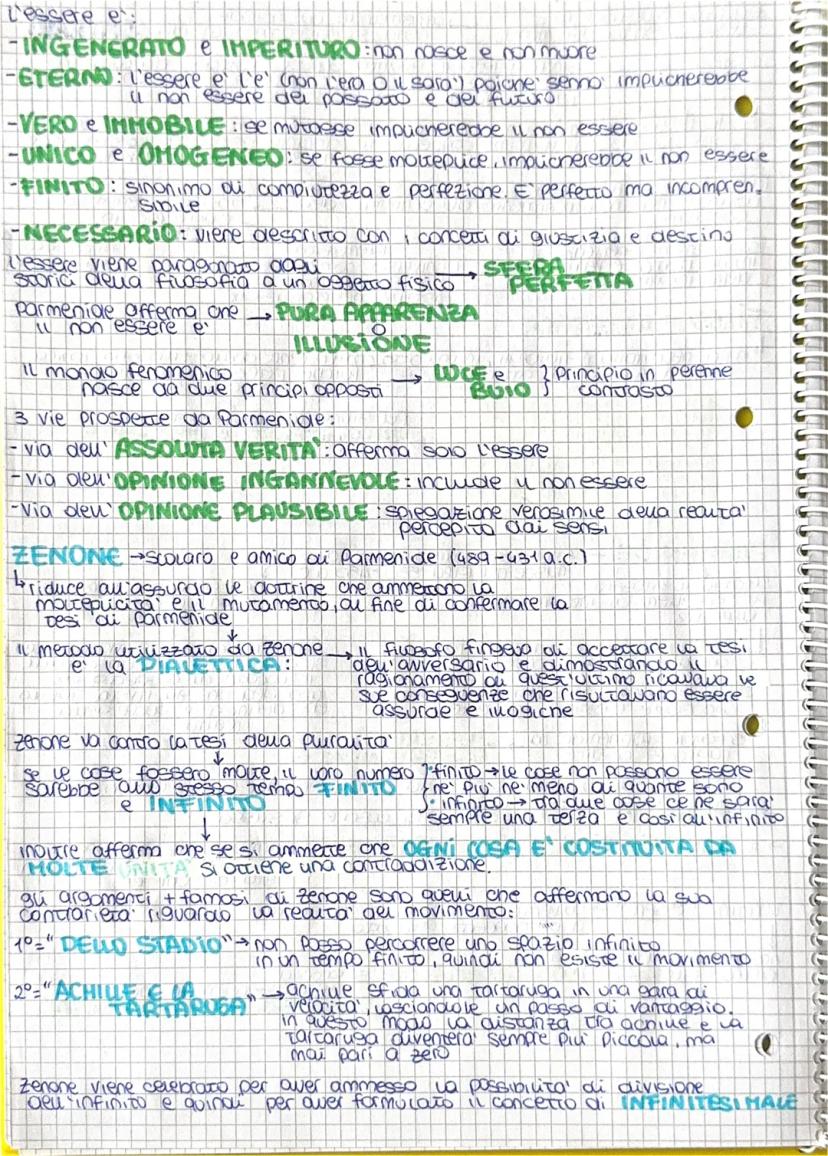 L'essere è:
-INGENERATO e IMPERITURO: non nasce e non muore
-ETERNO: l'essere è l'è (non l'era o il sarà) poiché sennò implicherebbe
il non essere del passato e del futuro
-VERO e IMMOBILE: se mutasse implicherebbe il non essere
-UNICO e OMOGENEO: se fosse molteplice, implicherebbe il non essere
-FINITO: sinonimo di compiutezza e perfezione. E' perfetto ma incompren.
sibile
-NECESSARIO: viene descritto con i concetti di giustizia e destino
L'essere viene paragonato dagli → SFERA
storici della filosofia a un oggetto fisico PERFETTA
Parmenide afferma che → PURA APPARENZA
il non essere è o
ILLUSIONE
Il mondo fenomenico → LUCE e } Principio in perenne
nasce da due principi opposti BUIO contrasto
3 vie prospette da Parmenide:
- via dell'ASSOLUTA VERITA': afferma solo l'essere
- via dell'OPINIONE INGANNEVOLE: include il non essere
-via dell'OPINIONE PLAUSIBILE: spiegazione verosimile della realtà
percepita dai sensi
ZENONE → scolaro e amico di Parmenide (489-431 a.c.)
↳ riduce all'assurdo le dottrine che ammettono la
molteplicità e il mutamento, al fine di confermare la
tesi di Parmenide
↓
Il metodo utilizzato da Zenone → Il filosofo fingeva di accettare la tesi
è la DIALETTICA: dell'avversario e dimostrando il
ragionamento di quest'ultimo ricavava le
sue conseguenze che risultavano essere
assurde e illogiche
Zenone va contro la tesi della pluralità
↓
se le cose fossero molte, il loro numero } · finito → le cose non possono essere
sarebbe allo stesso tempo FINITO né più né meno di quante sono
e INFINITO · infinito → tra due cose ce ne sarà
sempre una terza e così all'infinito
↓
Inoltre afferma che se si ammette che OGNI COSA E' COSTITUITA DA
MOLTE UNITA' si ottiene una contraddizione.
gli argomenti + famosi di Zenone sono quelli che affermano la sua
contrarietà riguardo la realtà del movimento:
1°="DELLO STADIO" → non posso percorrere uno spazio infinito
in un tempo finito, quindi non esiste il movimento
2°="ACHILLE E LA → achille sfida una tartaruga in una gara di
TARTARUGA" velocità, lasciandole un passo di vantaggio.
In questo modo la distanza tra achille e la
tartaruga diventerà sempre più piccola, ma
mai pari a zero
Zenone viene celebrato per aver ammesso la possibilità di divisione
dell'infinito e quindi per aver formulato il concetto di INFINITESIMALE